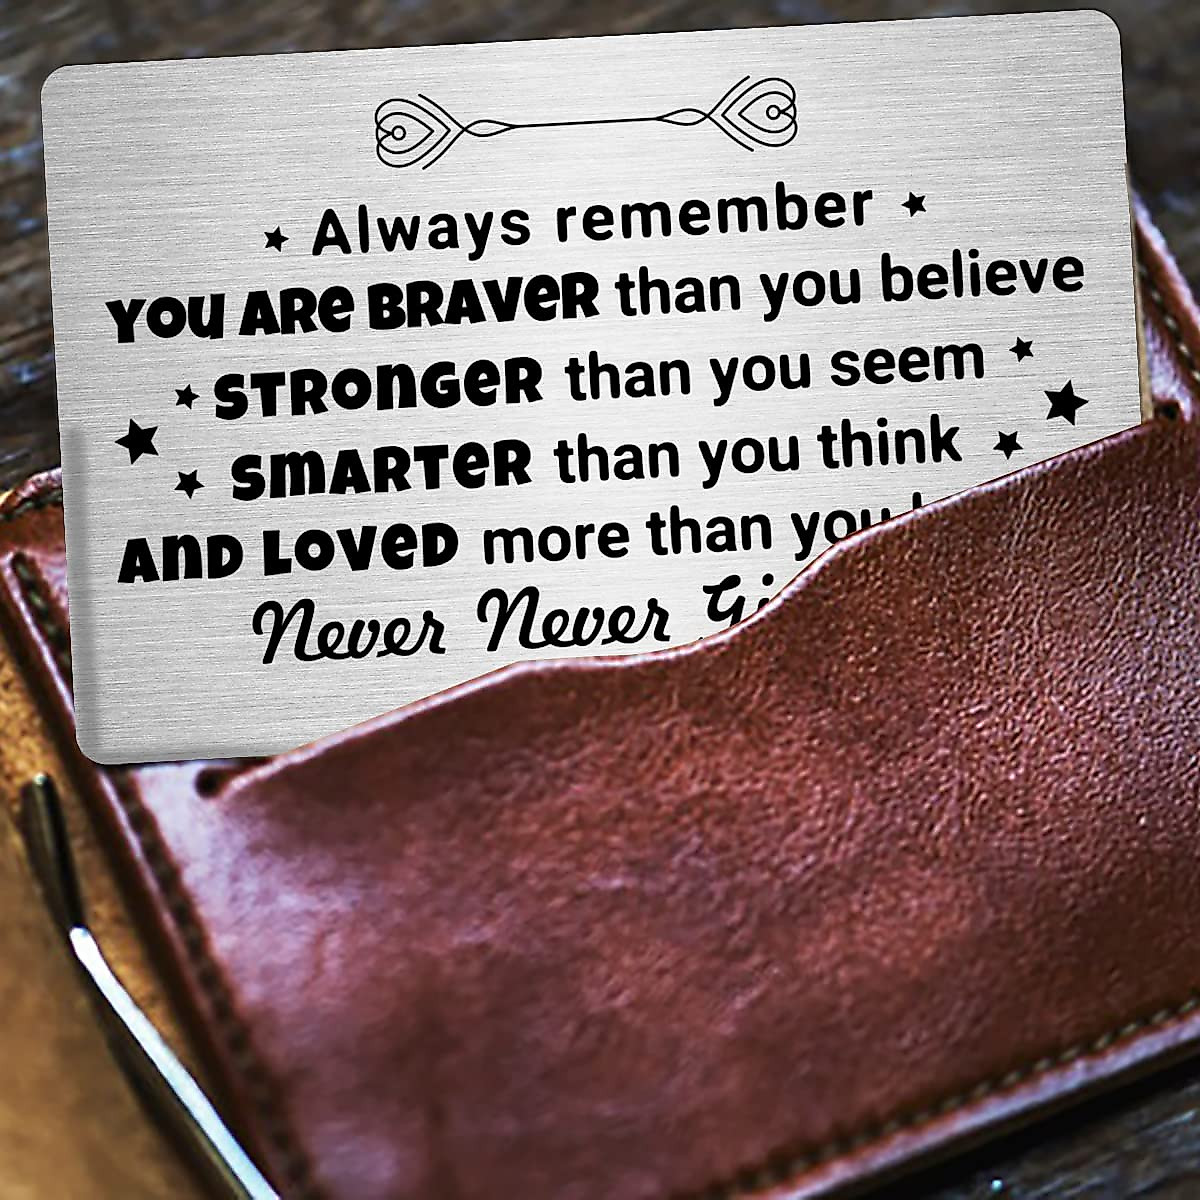 Always remember
YOU ARE BRAVER than you believe
STRONGER than you seem
SMARTER than you think
AND LOVED more than you
Never Never